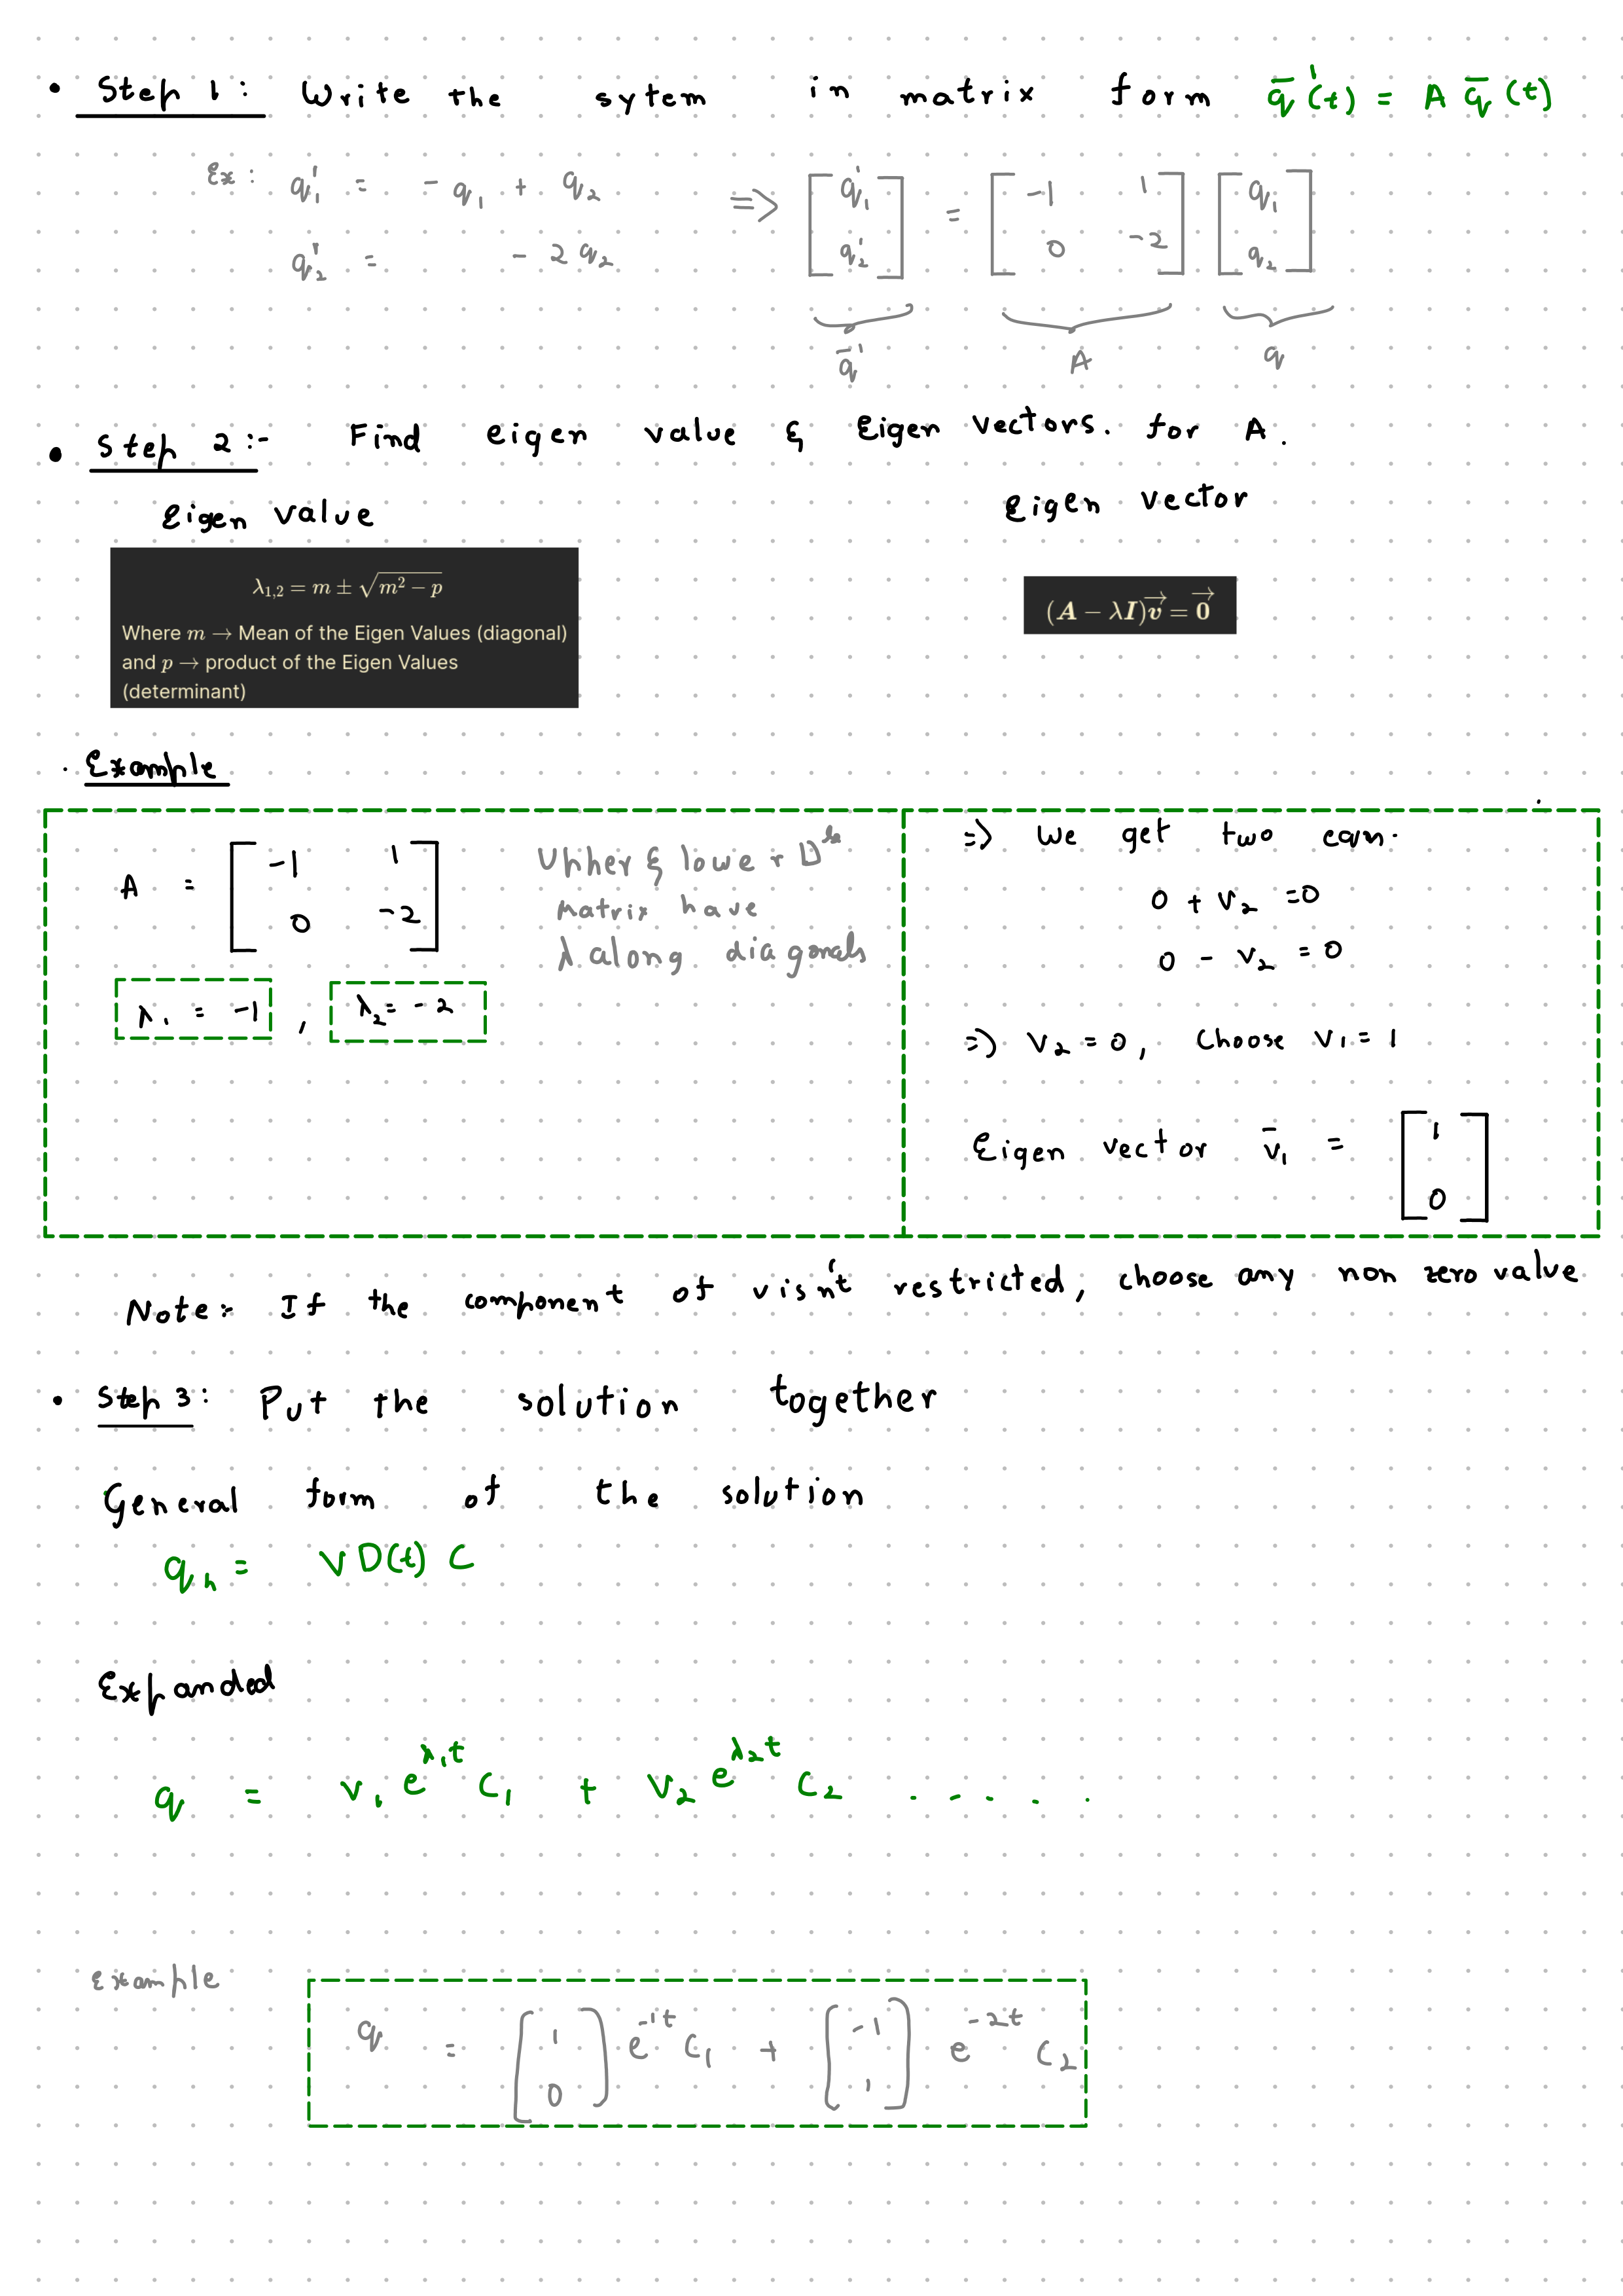 • Step 1: Write the sytem in matrix form q̄'(t) = A q̄(t)
Ex: q₁' = - q₁ + q₂ => [q₁' q₂'] = [-1 1; 0 -2] [q₁ q₂]
q₂' = - 2q₂
q̄' A q
• Step 2:- Find eigen value & Eigen vectors. for A.
Eigen value Eigen vector
λ₁,₂ = m ± √(m² − p)
Where m → Mean of the Eigen Values (diagonal)
and p → product of the Eigen Values
(determinant)
(A − λI)v⃗ = 0⃗
. Example
A = [-1 1; 0 -2]
Upper & lower Δle
matrix have
λ along diagonals
λ₁ = -1 , λ₂ = -2
=> We get two eqn.
0 + v₂ = 0
0 - v₂ = 0
=> v₂ = 0, choose v₁ = 1
Eigen vector v̄₁ = [1 0]
Note:- If the component of v isn't restricted, choose any non zero value
• Step 3: Put the solution together
General form of the solution
qₕ = V D(t) C
Expanded
q = v₁ e^λ₁t C₁ + v₂ e^λ₂t C₂ . . . . .
Example
q = [1 0] e^-1t C₁ + [-1 1] e^-2t C₂